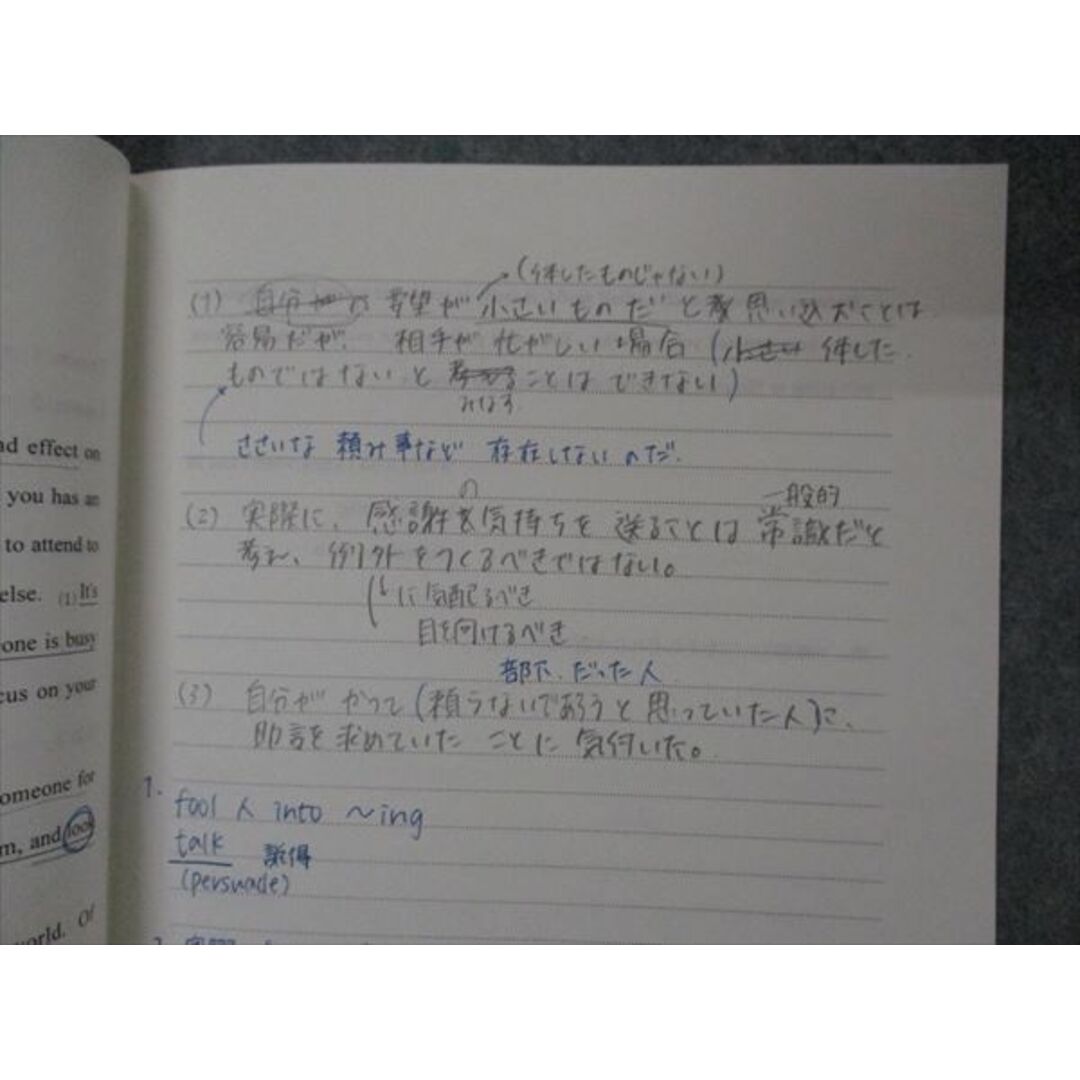 ad effect on
you has an
to attend to
else. (1) It's
one is busy
cus on your
omeone for
m, and look
world. Of
(大したものじゃない)
(1) 自分の要望が小さいものだと思い込むことは
容易だが、相手が忙がしい場合(小さい 大した
ものではないと考えることはできない)
みなす
ささいな頼み事など存在しないのだ.
の 一般的
(2) 実際に、感謝を気持ちを送ることは常識だと
考え、例外をつくるべきではない。
に気配るべき
目を向けるべき
部下だった人
(3) 自分がかつて(頼らないであろうと思っていた人)に、
助言を求めていたことに気付いた。
1.
fool 人 into ~ing
talk 説得
(persuade)